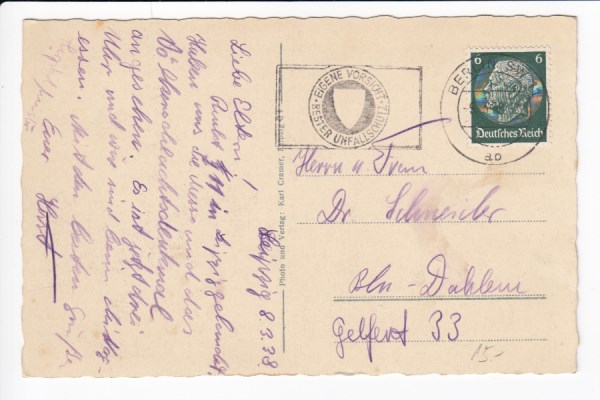 Leipzig 8.3.38
Liebe Eltern!
Punkt in Leipzig gelandet.
Haben uns die Messe und das
Völkerschlachtdenkmal
angesehen. Es ist jetzt drei
Uhr und wir sind beim Mittag-
essen. Mit den besten Grüßen
Euer Horst
Photo und Verlag: Karl Cramer, Leipzig
EIGENE VORSICHT
BESTER UNFALLSCHUTZ
BERLIN
ao
6 6
Deutsches Reich
Herrn u. Frau
Dr. Schneider
Bln-Dahlem
Gelfert 33
15.-